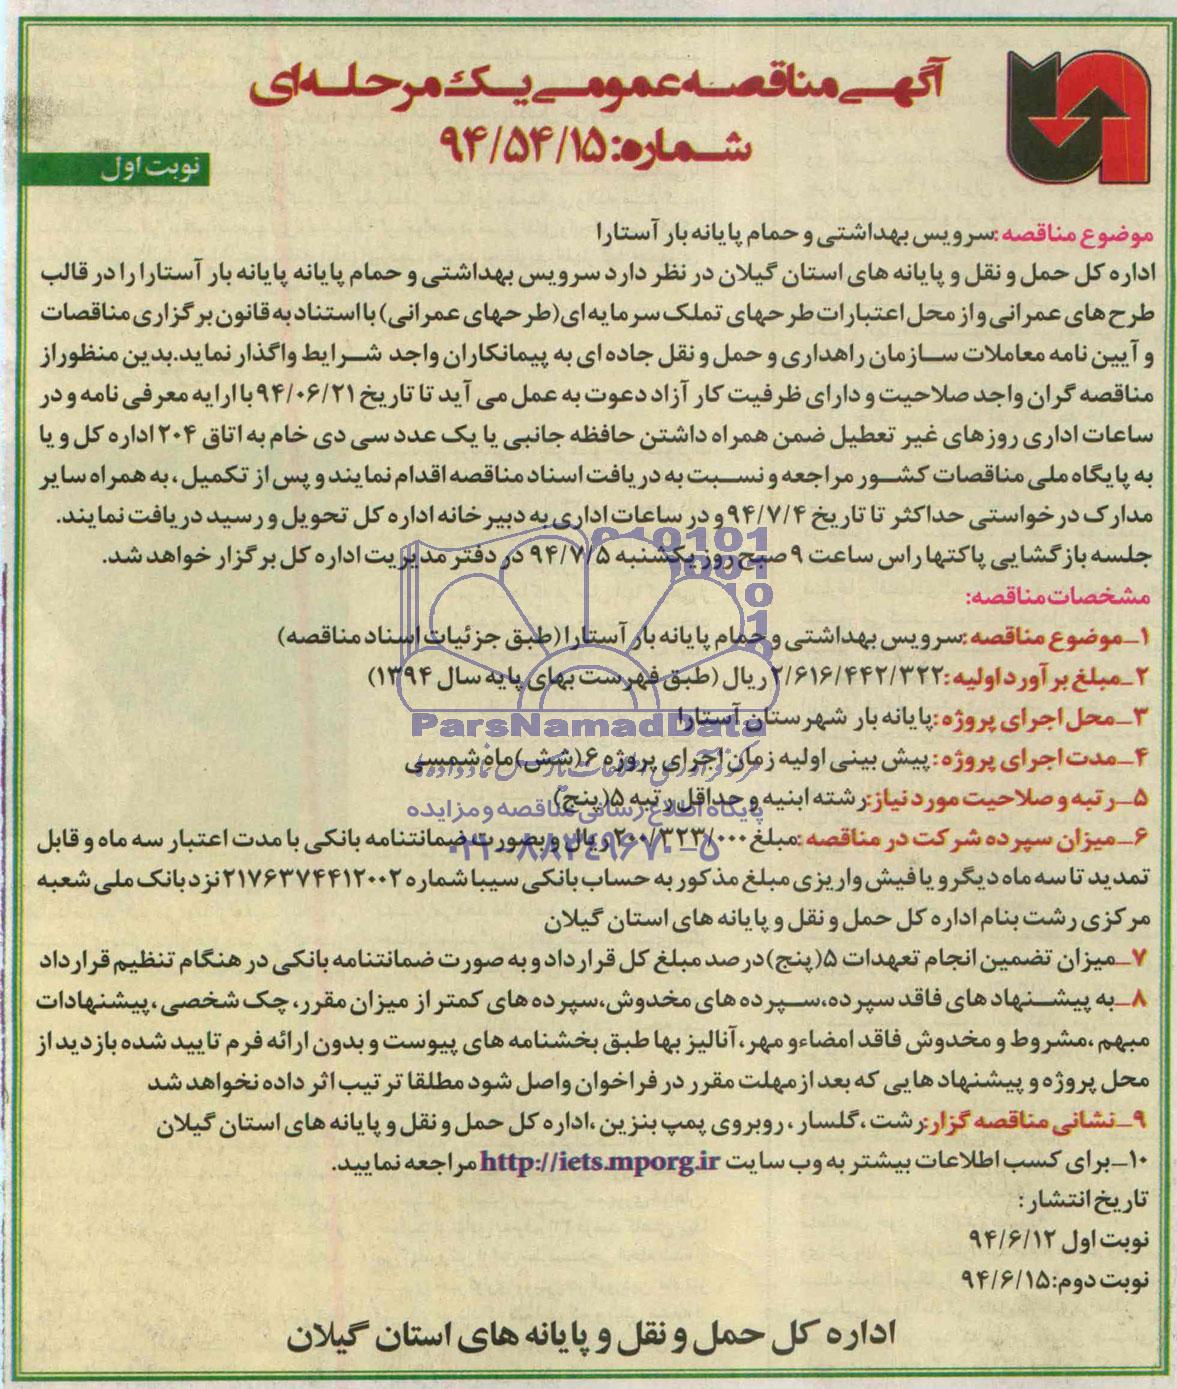 آگهی مناقصه عمومی یک مرحله‌ای
شماره: ۹۴/۵۴/۱۵
نوبت اول
موضوع مناقصه: سرویس بهداشتی و حمام پایانه بار آستارا
اداره کل حمل و نقل و پایانه های استان گیلان در نظر دارد سرویس بهداشتی و حمام پایانه پایانه بار آستارا را در قالب
طرح های عمرانی و از محل اعتبارات طرحهای تملک سرمایه ای (طرحهای عمرانی) با استناد به قانون برگزاری مناقصات
و آیین نامه معاملات سازمان راهداری و حمل و نقل جاده ای به پیمانکاران واجد شرایط واگذار نماید. بدین منظور از
مناقصه گران واجد صلاحیت و دارای ظرفیت کار آزاد دعوت به عمل می آید تا تاریخ ۹۴/۰۶/۲۱ با ارایه معرفی نامه و در
ساعات اداری روزهای غیر تعطیل ضمن همراه داشتن حافظه جانبی یا یک عدد سی دی خام به اتاق ۲۰۴ اداره کل و یا
به پایگاه ملی مناقصات کشور مراجعه و نسبت به دریافت اسناد مناقصه اقدام نمایند و پس از تکمیل، به همراه سایر
مدارک درخواستی حداکثر تا تاریخ ۹۴/۷/۴ و در ساعات اداری به دبیرخانه اداره کل تحویل و رسید دریافت نمایند.
جلسه بازگشایی پاکتها راس ساعت ۹ صبح روز یکشنبه ۹۴/۷/۵ در دفتر مدیریت اداره کل برگزار خواهد شد.
مشخصات مناقصه:
۱ـ موضوع مناقصه: سرویس بهداشتی و حمام پایانه بار آستارا (طبق جزئیات اسناد مناقصه)
۲ـ مبلغ برآورد اولیه: ۲/۶۱۶/۴۴۲/۳۲۲ ریال (طبق فهرست بهای پایه سال ۱۳۹۴)
۳ـ محل اجرای پروژه: پایانه بار شهرستان آستارا
ParsNamadData
۴ـ مدت اجرای پروژه: پیش بینی اولیه زمان اجرای پروژه ۶ (شش) ماه شمسی
۵ـ رتبه و صلاحیت مورد نیاز: رشته ابنیه و حداقل رتبه ۵ (پنج)
پایگاه اطلاع رسانی مناقصه و مزایده
۶ـ میزان سپرده شرکت در مناقصه: مبلغ ۲۰۰/۳۲۳/۰۰۰ ریال و بصورت ضمانتنامه بانکی با مدت اعتبار سه ماه و قابل
۰۲۱-۸۸۳۴۹۶۷۰-۵
تمدید تا سه ماه دیگر و یا فیش واریزی مبلغ مذکور به حساب بانکی سیبا شماره ۲۱۷۶۳۷۴۴۱۲۰۰۲ نزد بانک ملی شعبه
مرکزی رشت بنام اداره کل حمل و نقل و پایانه های استان گیلان
۷ـ میزان تضمین انجام تعهدات ۵ (پنج) درصد مبلغ کل قرارداد و به صورت ضمانتنامه بانکی در هنگام تنظیم قرارداد
۸ـ به پیشنهادهای فاقد سپرده، سپرده های مخدوش، سپرده های کمتر از میزان مقرر، چک شخصی، پیشنهادات
مبهم، مشروط و مخدوش فاقد امضاء و مهر، آنالیز بها طبق بخشنامه های پیوست و بدون ارائه فرم تایید شده بازدید از
محل پروژه و پیشنهادهایی که بعد از مهلت مقرر در فراخوان واصل شود مطلقا ترتیب اثر داده نخواهد شد
۹ـ نشانی مناقصه گزار: رشت، گلسار، روبروی پمپ بنزین، اداره کل حمل و نقل و پایانه های استان گیلان
۱۰ـ برای کسب اطلاعات بیشتر به وب سایت http://iets.mporg.ir مراجعه نمایید.
تاریخ انتشار:
نوبت اول ۹۴/۶/۱۲
نوبت دوم: ۹۴/۶/۱۵
اداره کل حمل و نقل و پایانه های استان گیلان